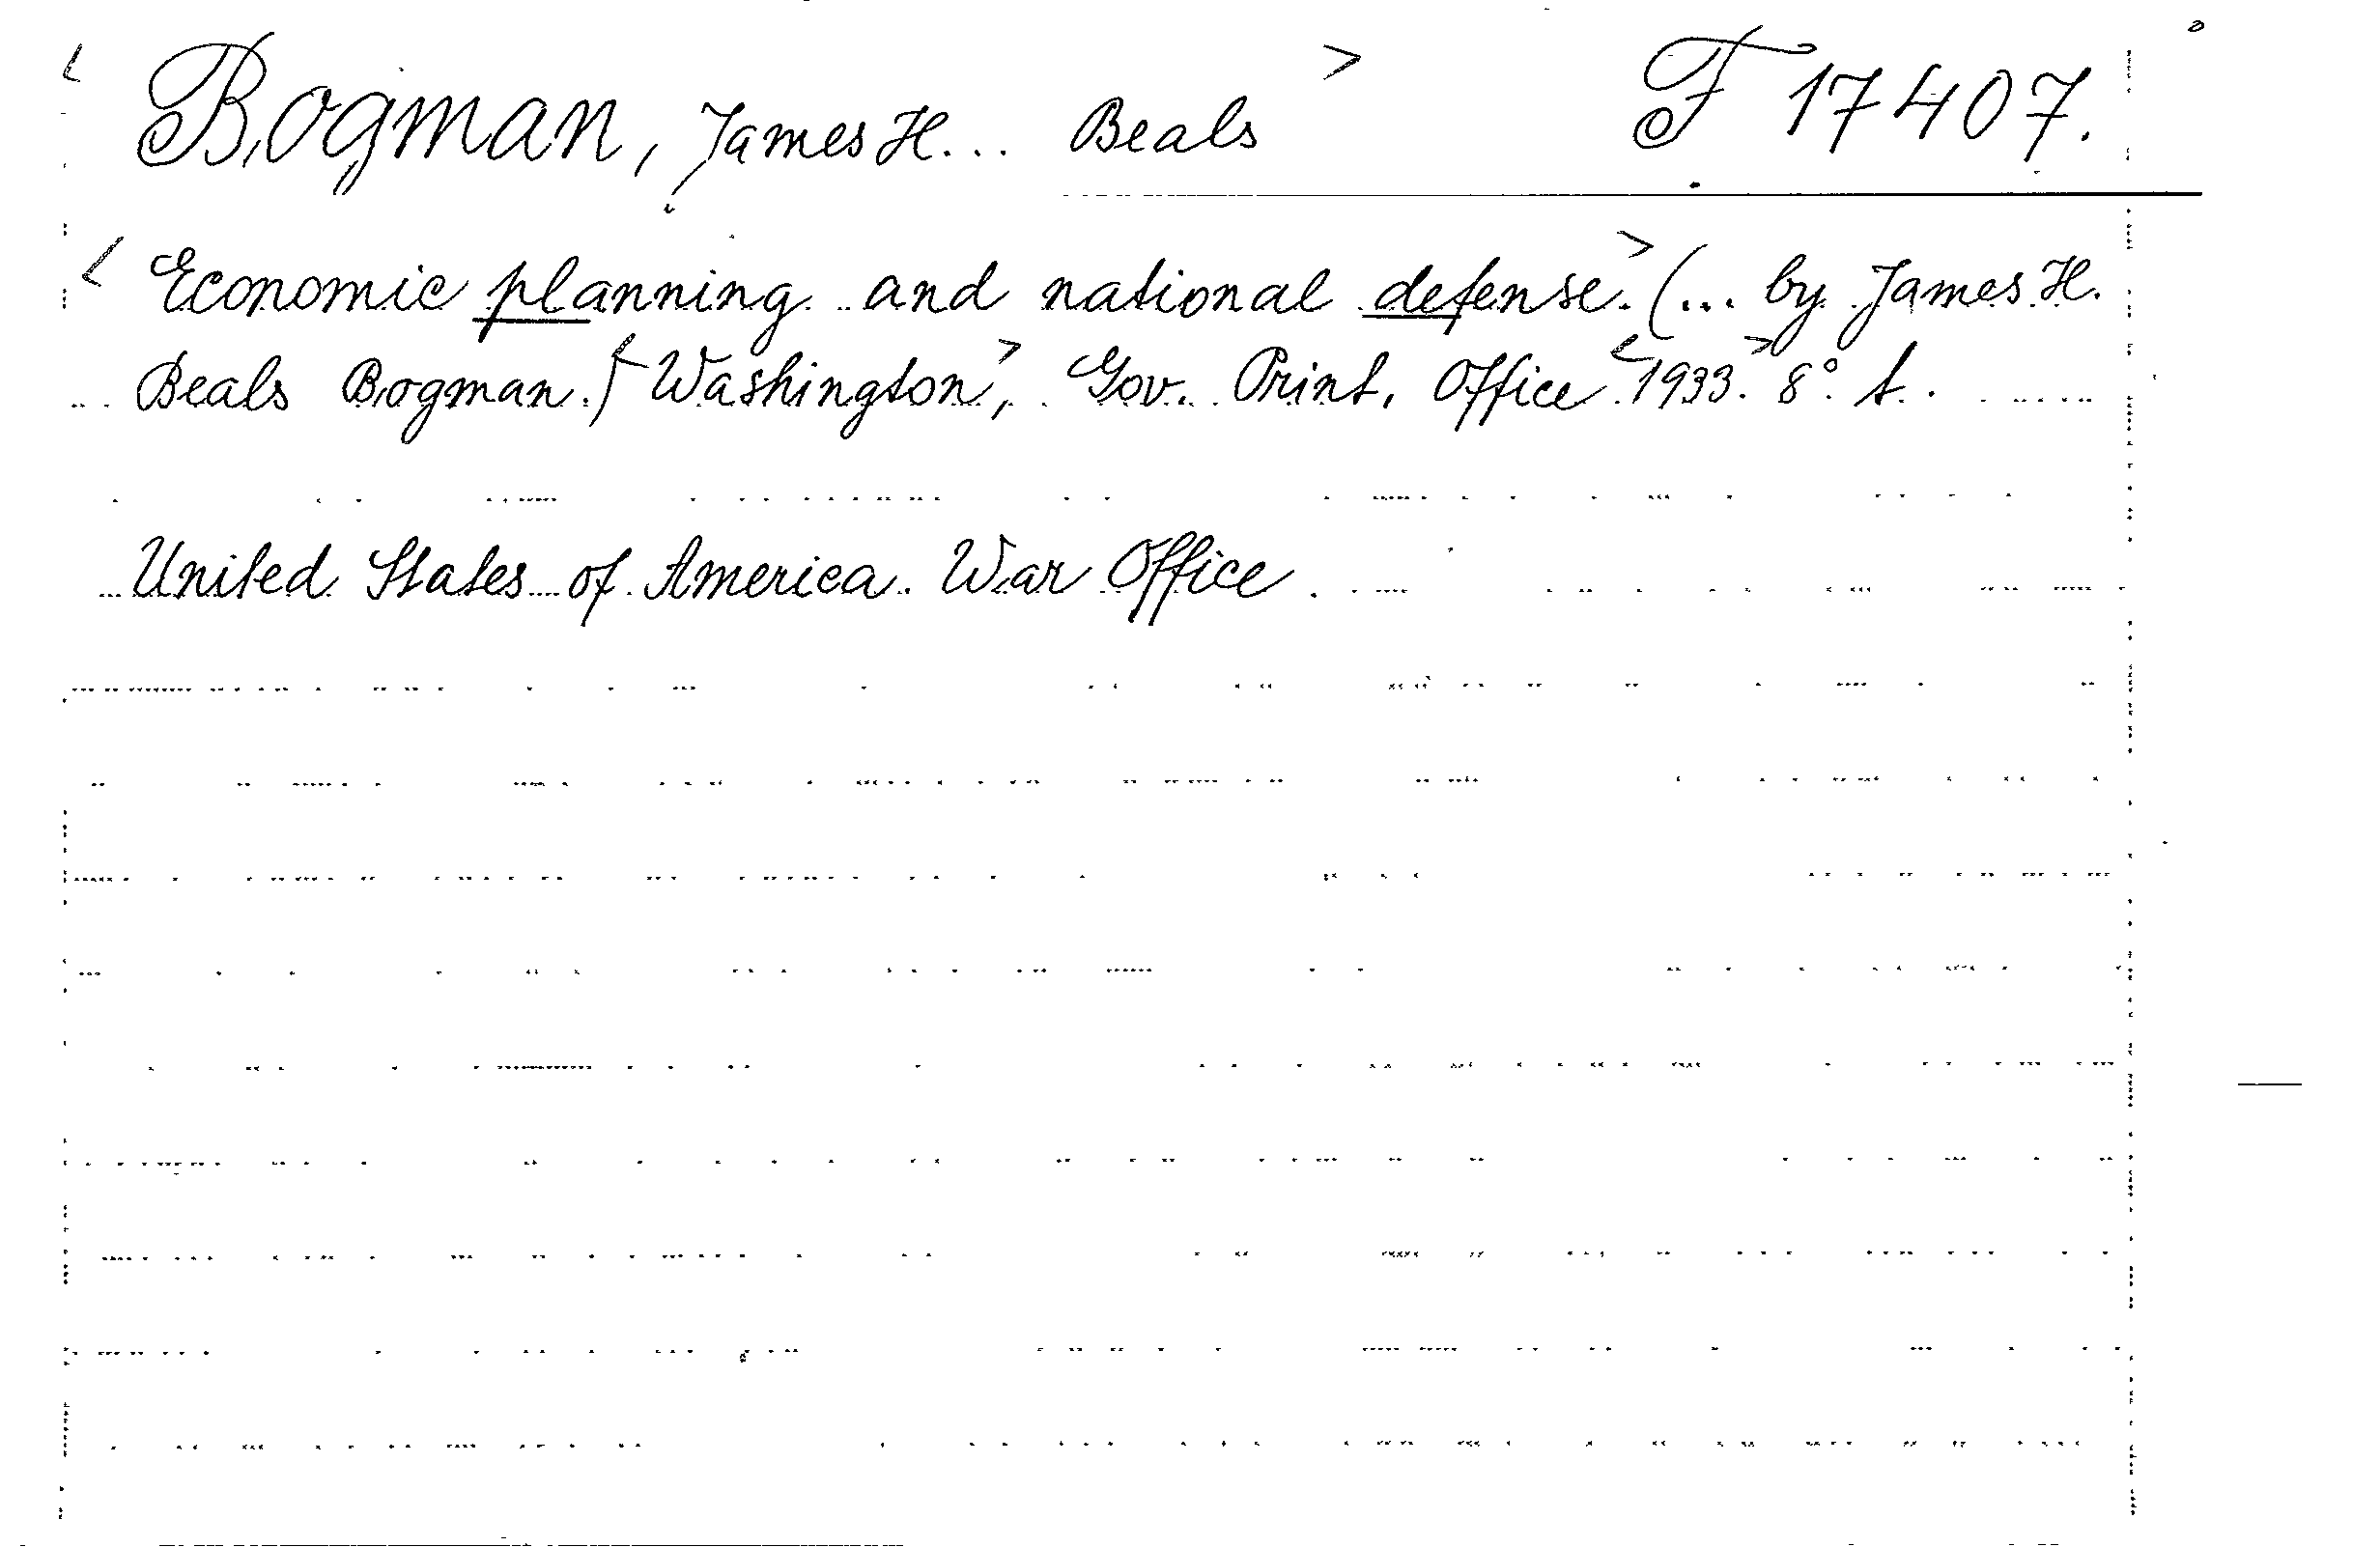 < Bogman, James H... Beals > F 17407.
< Economic planning and national defense.> (... by James H.
Beals Bogman.) <Washington>, Gov. Print. Office <1933.> 8° t.
United States of America. War Office.